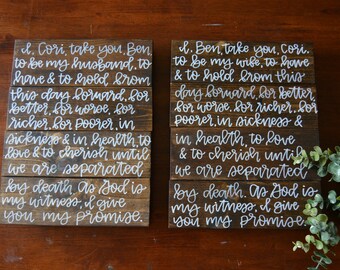 I, Cori, take you, Ben,
to be my husband, to
have & to hold from
this day forward, for
better, for worse, for
richer, for poorer, in
sickness & in health, to
love & to cherish until
we are separated
by death. As God is
my witness, I give
you my promise.
I, Ben, take you, Cori,
to be my wife, to have
& to hold from this
day forward, for better,
for worse, for richer, for
poorer, in sickness &
in health, to love
& to cherish until
we are separated
by death. As God is
my witness, I give
you my promise.